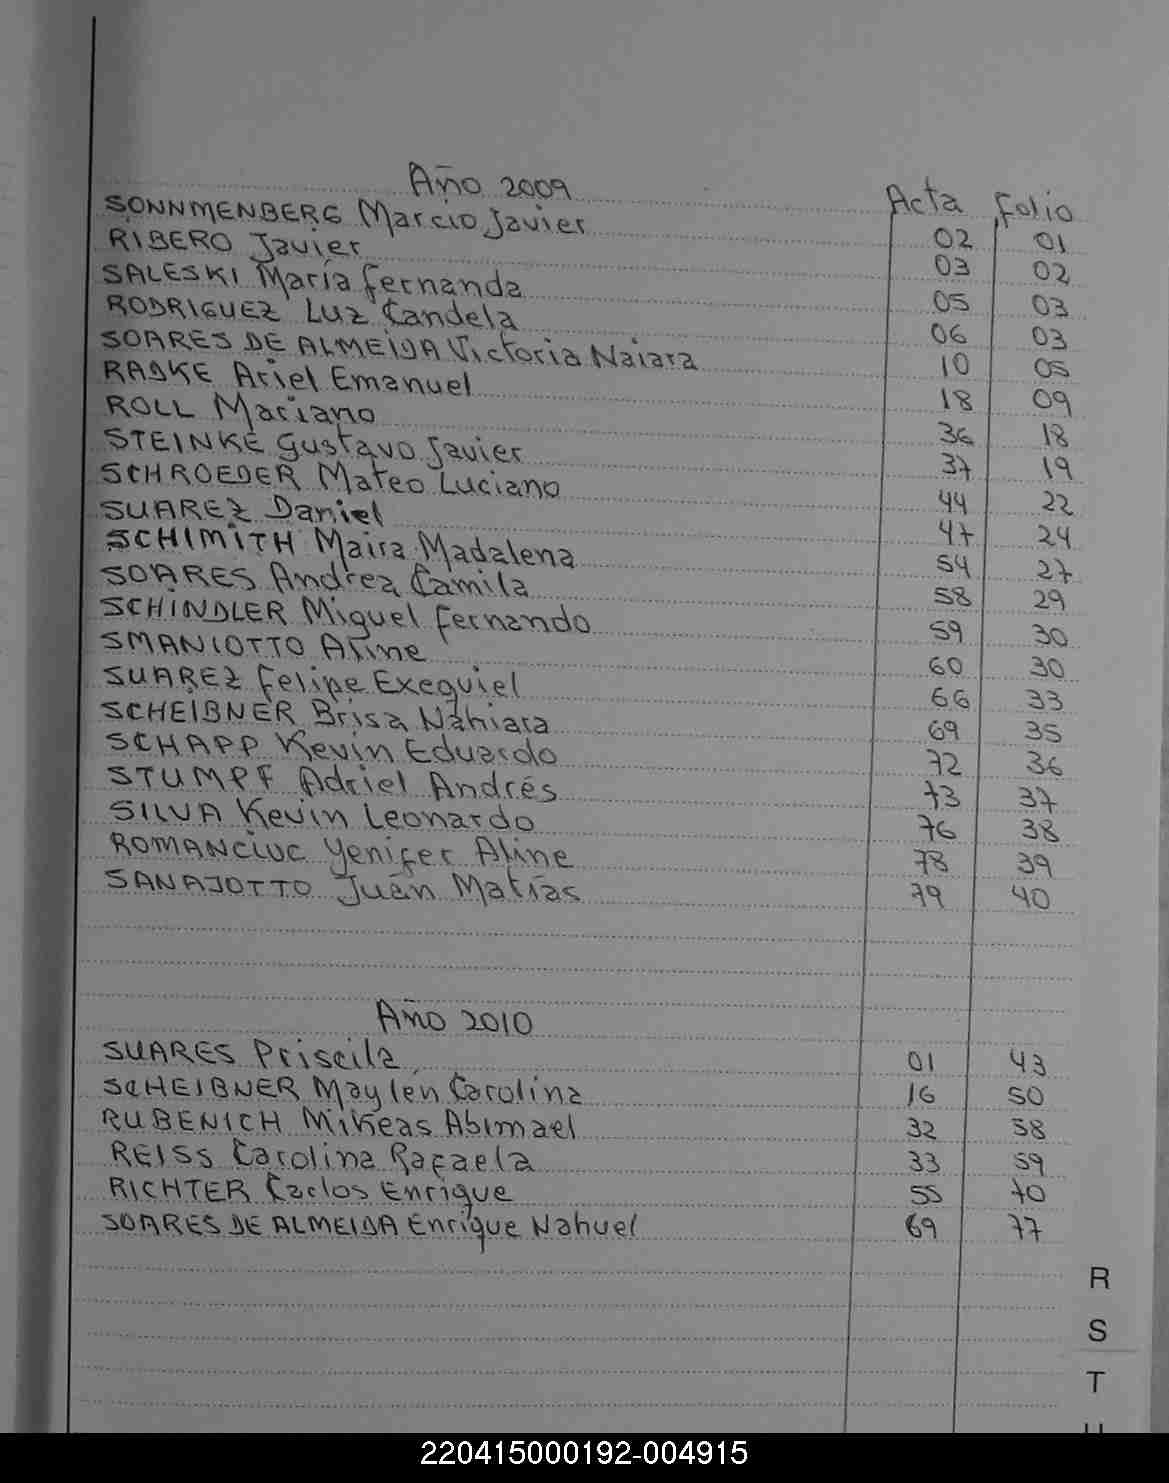 Año 2009 Acta Folio
SONNMENBERG Marcio Javier 02 01
RIBERO Javier 03 02
SALESKI María Fernanda 05 03
RODRIGUEZ Luz Candela 06 03
SOARES DE ALMEIDA Victoria Naiara 10 05
RADKE Ariel Emanuel 18 09
ROLL Mariano 36 18
STEINKE Gustavo Javier 37 19
SCHROEDER Mateo Luciano 44 22
SUAREZ Daniel 47 24
SCHIMITH Maira Madalena 54 27
SOARES Andrea Camila 58 29
SCHINDLER Miguel Fernando 59 30
SMANIOTTO Aline 60 30
SUAREZ Felipe Exequiel 66 33
SCHEIBNER Brisa Nahiara 69 35
SCHAPP Kevin Eduardo 72 36
STUMPF Adriel Andrés 73 37
SILVA Kevin Leonardo 76 38
ROMANCIUC Yenifer Aline 78 39
SANAJOTTO Juan Matías 79 40
Año 2010
SUARES Priscila 01 43
SCHEIBNER Maylen Carolina 16 50
RUBENICH Mikeas Abimael 32 58
REISS Carolina Rafaela 33 59
RICHTER Carlos Enrique 55 70
SOARES DE ALMEIDA Enrique Nahuel 69 77
R
S
T
220415000192-004915